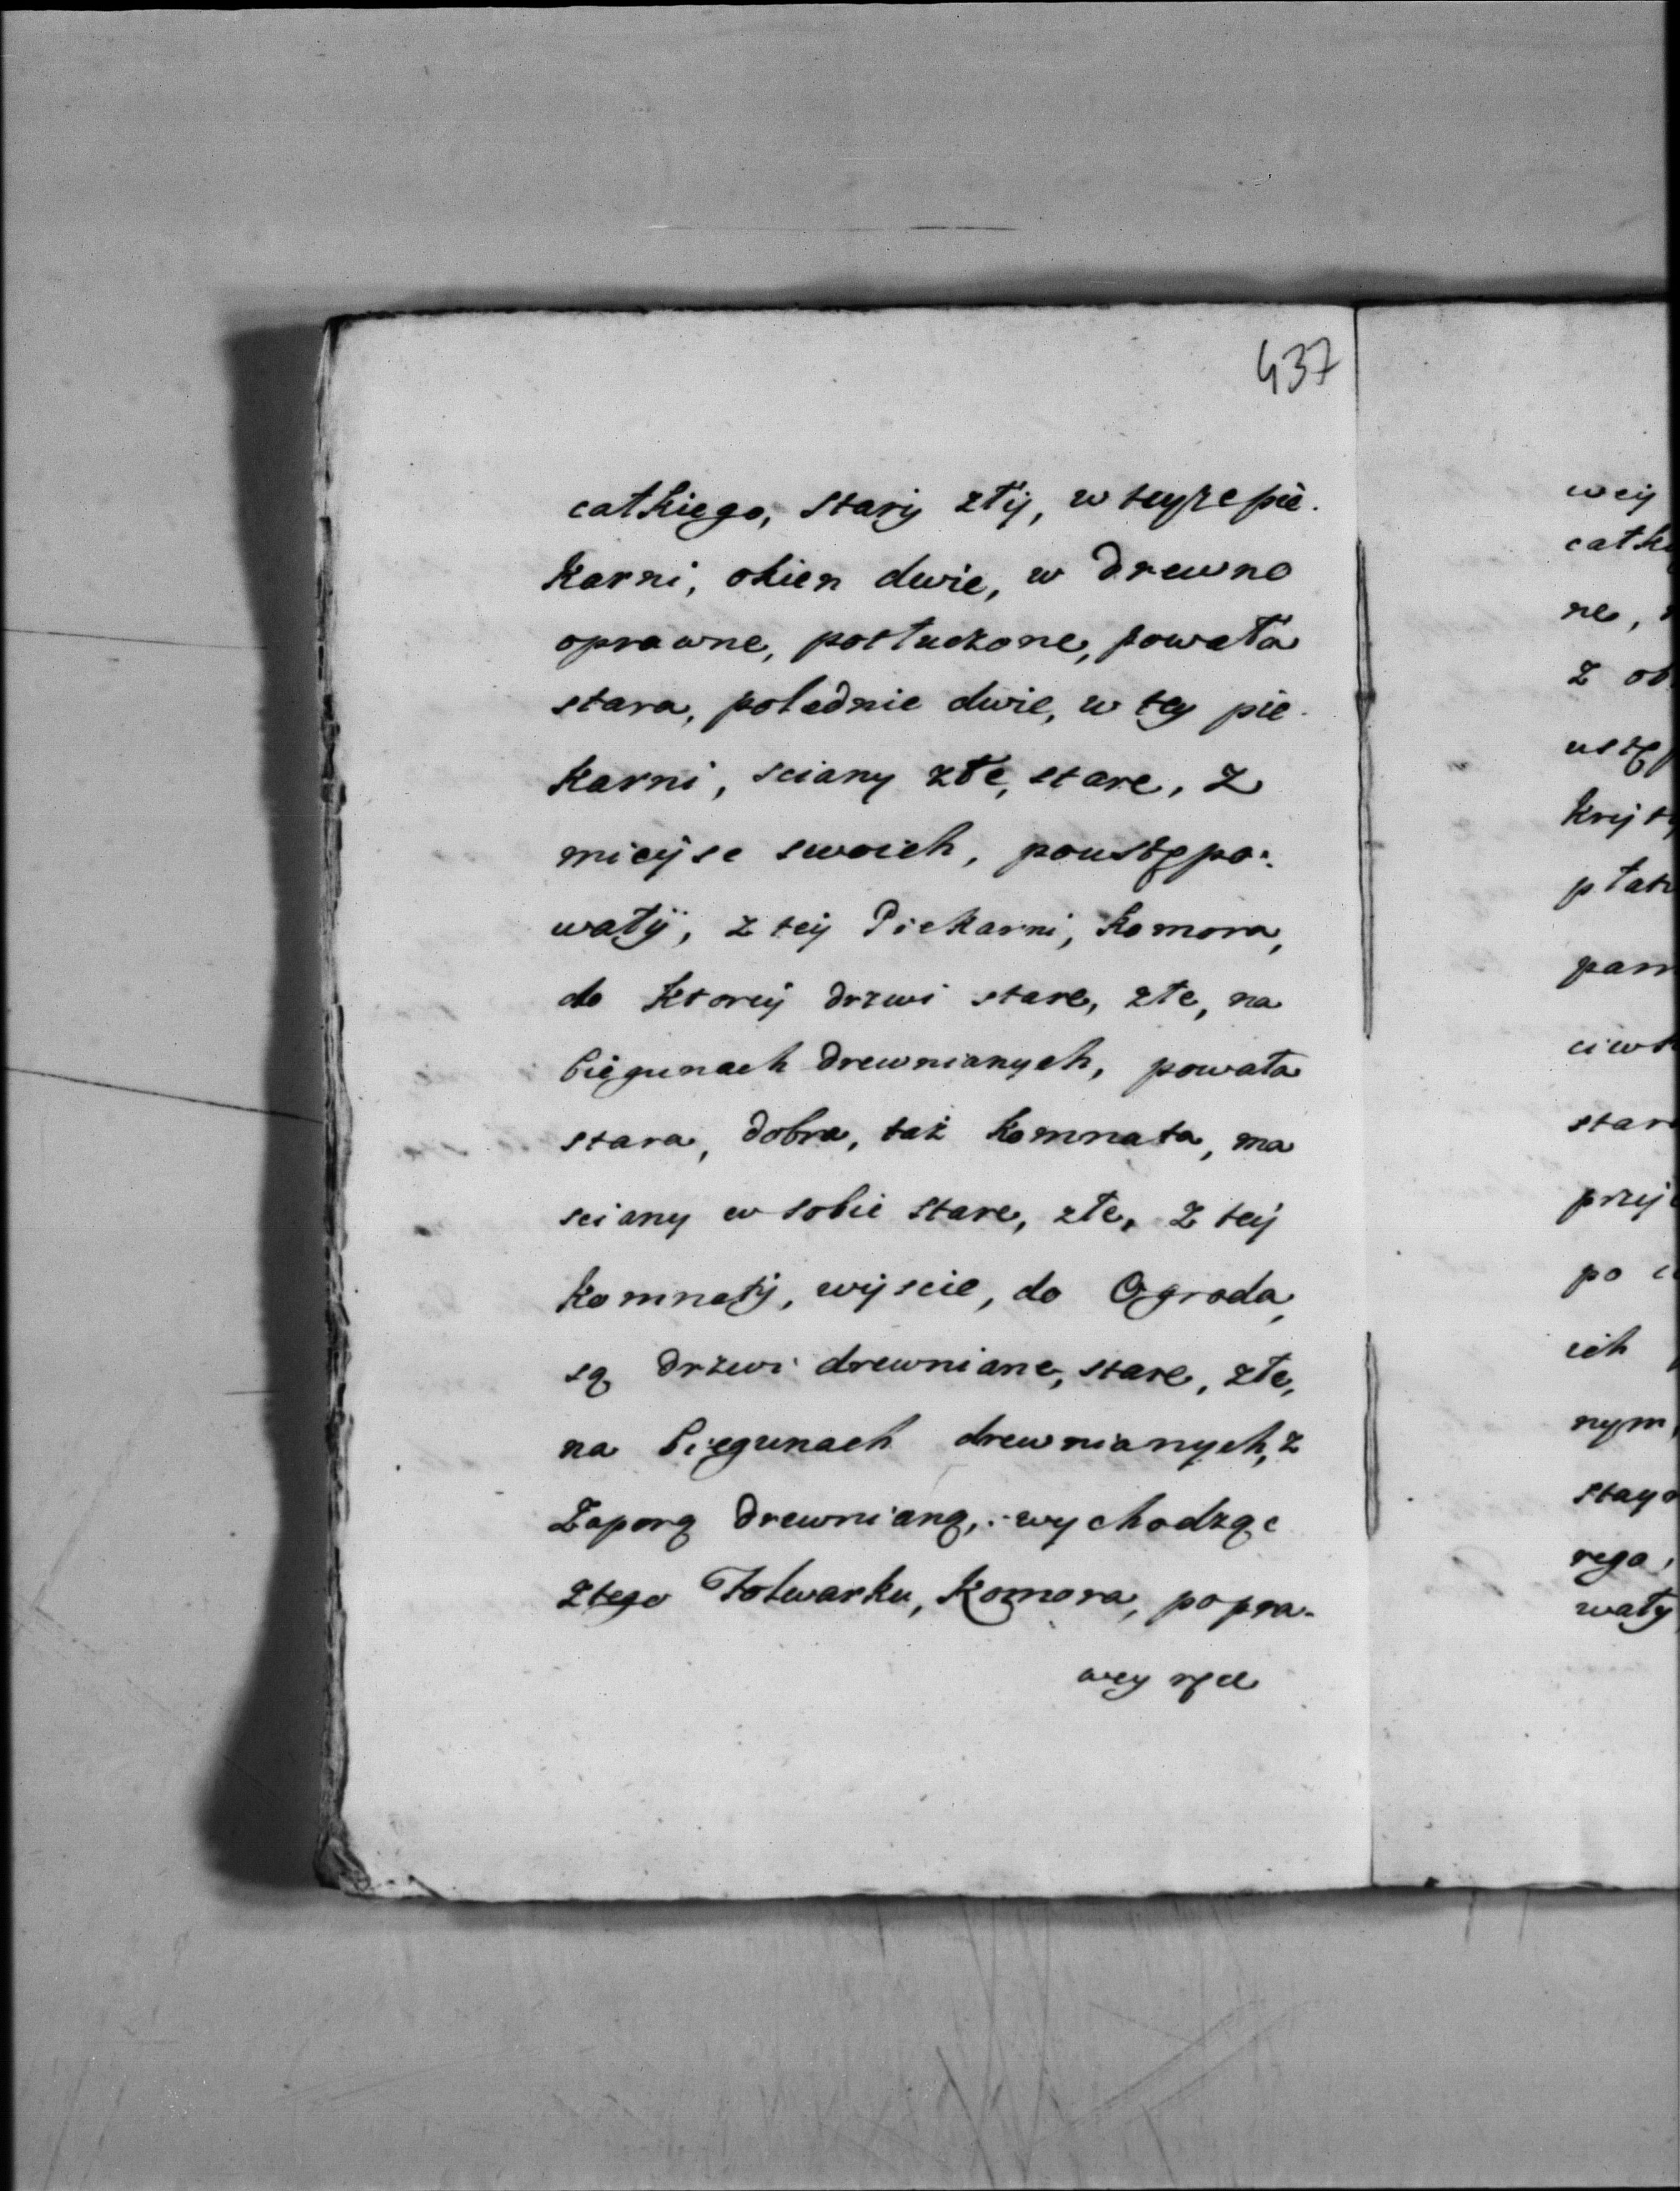 437
całkiego, starÿ złÿ, w teyże pie.
karni, okien dwie, w drewno
oprawne, potłuczone, powała
stara, polednie dwie, w tey pie.
karni, sciany złe, stare, z
mieÿsc swoich, poustępo:
wałÿ, z teÿ Piekarni, komora,
do ktoreÿ drzwi stare, złe, na
biegunach drewnianych, powała
stara, dobra, taż komnata, ma
sciany w sobie stare, złe, z teÿ
komnatÿ, wÿscie, do Ogroda,
są drzwi drewniane, stare, złe,
na biegunach drewnianych, z
Zaporą drewnianą, wychodząc
ztego Folwarku, Komora, po pra.
wey ręce
weÿ
całk
ne,
z ob
ustęp
krÿt
płat
pam
ciwk
star
przÿ
po
ich
nym,
stay
rego,
wały